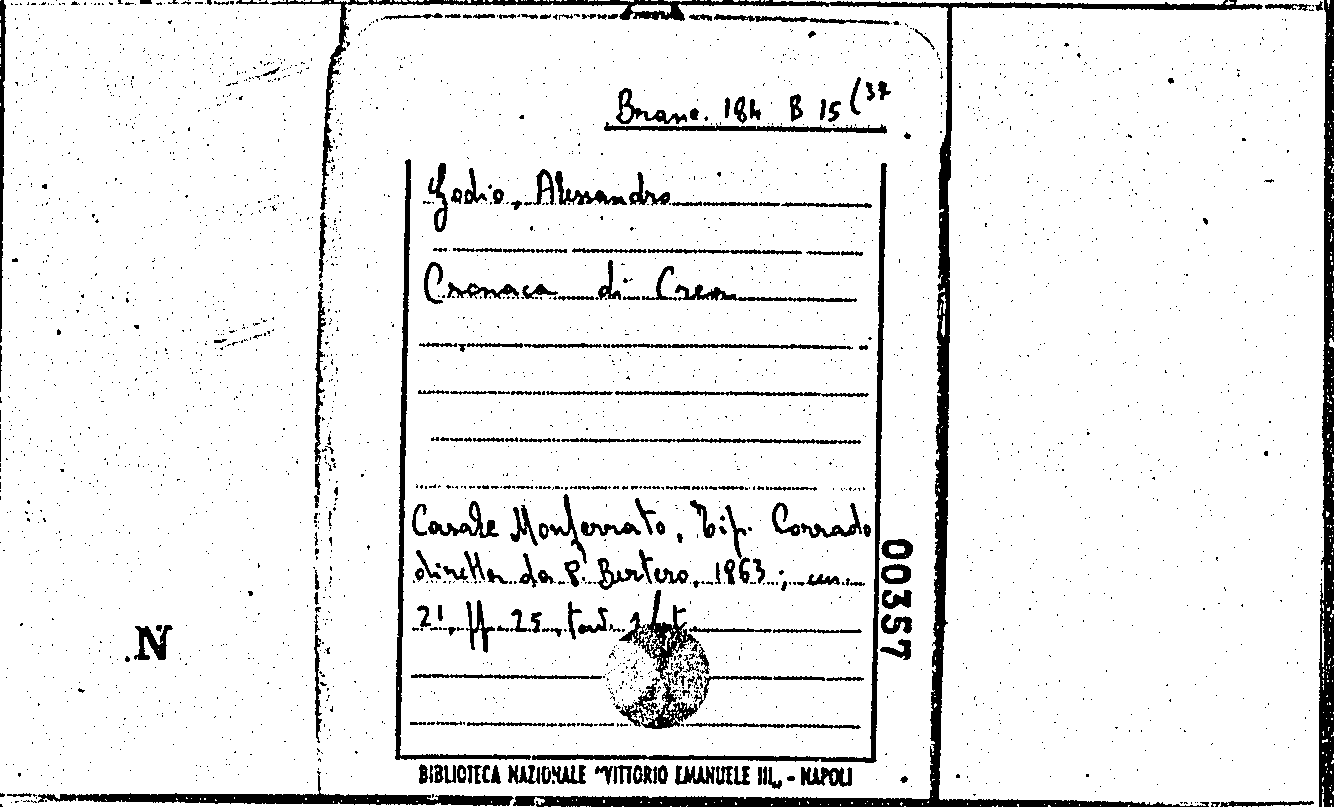 Branc. 184 B 15 (37
Godio, Alessandro
Cronaca di Crea
Casale Monferrato, Tip. Corrado
diretta da P. Bertero, 1863; cm.
21, pp. 25, tav. 1
00357
N
BIBLIOTECA NAZIONALE "VITTORIO EMANUELE III„ - NAPOLI